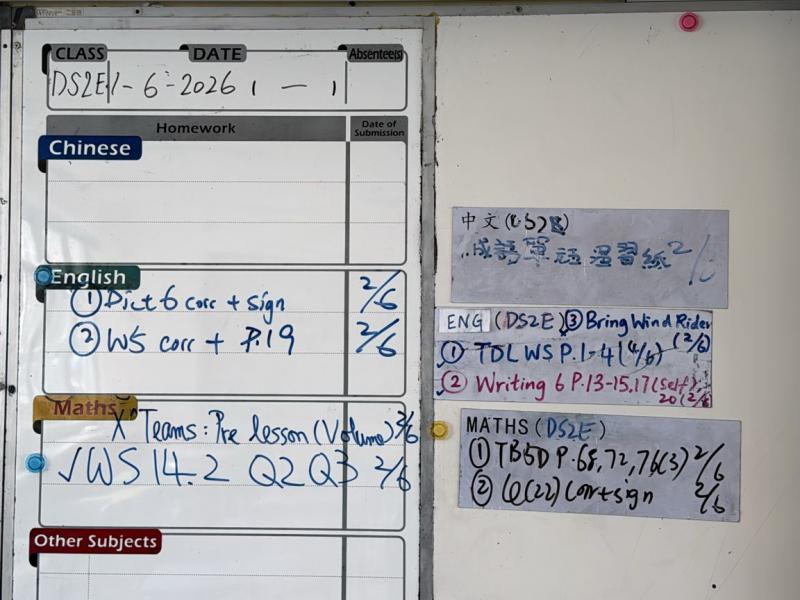 CLASS DATE Absentee(s)
DS2E 1-6-2026 1 — 1
Homework Date of Submission
Chinese
English
① Dict 6 corr + sign 2/6
② WS corr + P.19 2/6
Maths
X Teams: Pre lesson (Volume) 2/6
√ WS 14.2 Q2 Q3 2/6
Other Subjects
中文
成語單 習紙 2/
ENG (DS2E) ③ Bring Wind Rider (2/6)
① TDL WS P.1-4 (4/6)
② Writing 6 P.13-15, 17 (self), 20 (2/6
MATHS (DS2E)
① TB5D P.68, 72, 76(3) 2/6
② (22) Corr+sign 2/6